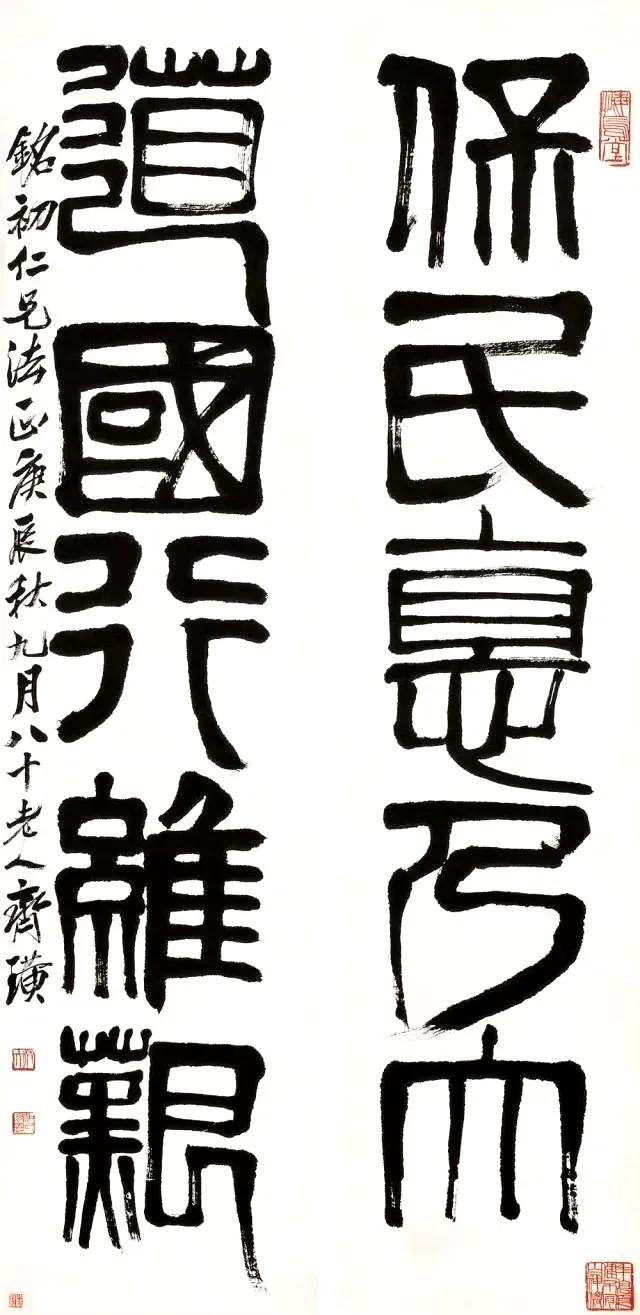 保民悳乃大
道國行維艱
銘初仁兄法正庚辰秋九月八十老人齊璜